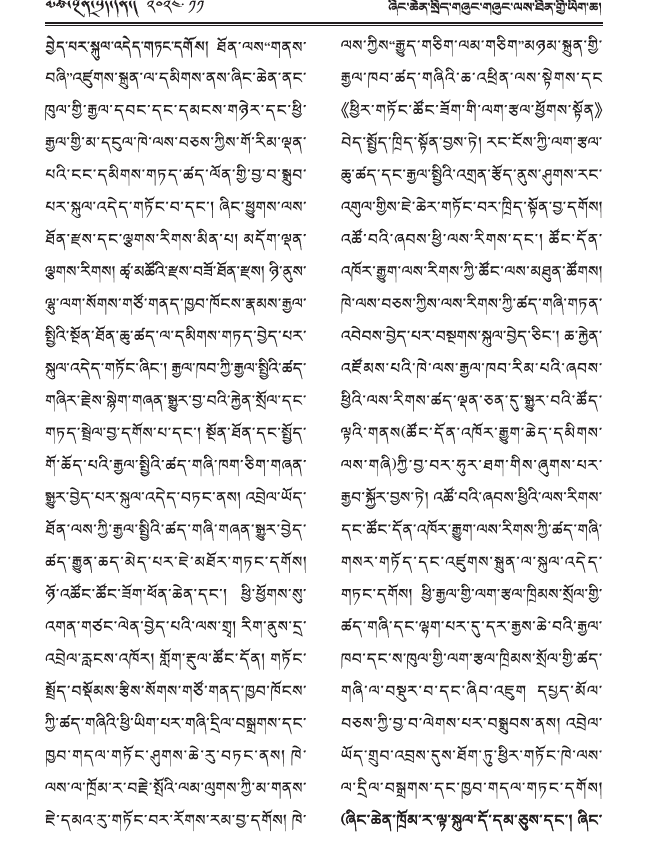 ༢༠༢༤.༡༡
ཞིང་ཆེན་སྲིད་གཞུང་གཞུང་ལས་ཐོན་གྱི་ཡིག་ཆ།
བྱེད་པར་སྐུལ་འདེད་གཏང་དགོས། ཐོན་ལས་“གནས་
བཞི”འཛུགས་སྐྲུན་ལ་དམིགས་ནས་ཞིང་ཆེན་ནང་
ཁུལ་གྱི་རྒྱལ་དབང་དང་དམངས་གཉེར་དང་ཕྱི་
རྒྱལ་གྱི་མ་དངུལ་ཁེ་ལས་བཅས་ཀྱིས་གོ་རིམ་ལྡན་
པའི་ངང་དམིགས་གཏད་ཚད་ལོན་གྱི་བྱ་བ་སྒྲུབ་
པར་སྐུལ་འདེད་གཏོང་བ་དང་། ཞིང་ཕྱུགས་ལས་
ཐོན་རྫས་དང་ལྕགས་རིགས་མིན་པ། མདོག་ལྡན་
ལྕགས་རིགས། ཚྭ་མཚོའི་རྫས་བཟོ་ཐོན་རྫས། ཉི་ནུས་
ལྷུ་ལག་སོགས་གཙོ་གནད་ཁྱབ་ཁོངས་རྣམས་རྒྱལ་
སྤྱིའི་སྔོན་ཐོན་ཆུ་ཚད་ལ་དམིགས་གཏད་བྱེད་པར་
སྐུལ་འདེད་གཏོང་ཞིང་། རྒྱལ་ཁབ་ཀྱི་རྒྱལ་སྤྱིའི་ཚད་
གཞིར་རྗེས་སྙེག་གཞན་སྒྱུར་བྱ་བའི་རྐྱེན་སྲོལ་དང་
གཏད་སྤྲེལ་བྱ་དགོས་པ་དང་། སྔོན་ཐོན་དང་སྤྱོད་
གོ་ཆོད་པའི་རྒྱལ་སྤྱིའི་ཚད་གཞི་ཁག་ཅིག་གཞན་
སྒྱུར་བྱེད་པར་སྐུལ་འདེད་བཏང་ནས། འབྲེལ་ཡོད་
ཐོན་ལས་ཀྱི་རྒྱལ་སྤྱིའི་ཚད་གཞི་གཞན་སྒྱུར་བྱེད་
ཚད་རྒྱུན་ཆད་མེད་པར་ཇེ་མཐོར་གཏང་དགོས།
ཉོ་འཚོང་ཚོང་ཟོག་ཕོན་ཆེན་དང་། ཕྱི་ཕྱོགས་སུ་
འགན་གཙང་ལེན་བྱེད་པའི་ལས་གྲྭ། རིག་ནུས་དྲ་
འབྲེལ་རླངས་འཁོར། གློག་རྡུལ་ཚོང་དོན། གཏོང་
སྤྲོད་བསྡོམས་རྩིས་སོགས་གཙོ་གནད་ཁྱབ་ཁོངས་
ཀྱི་ཚད་གཞིའི་ཕྱི་ཡིག་པར་གཞི་དྲིལ་བསྒྲགས་དང་
ཁྱབ་གདལ་གཏོང་ཤུགས་ཆེ་རུ་བཏང་ནས། ཁེ་
ལས་ལ་ཁྲོམ་ར་བརྗེ་སྤོའི་ལམ་ལུགས་ཀྱི་མ་གནས་
ཇེ་དམའ་རུ་གཏོང་བར་རོགས་རམ་བྱ་དགོས། ཁེ་
ལས་ཀྱིས་“རྒྱུད་གཅིག་ལམ་གཅིག”མཉམ་སྐྲུན་གྱི་
རྒྱལ་ཁབ་ཚད་གཞིའི་ཆ་འཕྲིན་ལས་སྟེགས་དང་
《ཕྱིར་གཏོང་ཚོང་ཟོག་གི་ལག་རྩལ་ཕྱོགས་སྟོན》
བེད་སྤྱོད་ཁྲིད་སྟོན་བྱས་ཏེ། རང་ངོས་ཀྱི་ལག་རྩལ་
ཆུ་ཚད་དང་རྒྱལ་སྤྱིའི་འགྲན་རྩོད་ནུས་ཤུགས་རང་
འགུལ་གྱིས་ཇེ་ཆེར་གཏོང་བར་ཁྲིད་སྟོན་བྱ་དགོས།
འཚོ་བའི་ཞབས་ཕྱི་ལས་རིགས་དང་། ཚོང་དོན་
འཁོར་རྒྱུག་ལས་རིགས་ཀྱི་ཚོང་ལས་མཐུན་ཚོགས།
ཁེ་ལས་བཅས་ཀྱིས་ལས་རིགས་ཀྱི་ཚད་གཞི་གཏན་
འབེབས་བྱེད་པར་བསྔགས་སྐུལ་བྱེད་ཅིང་། ཆ་རྐྱེན་
འཛོམས་པའི་ཁེ་ལས་རྒྱལ་ཁབ་རིམ་པའི་ཞབས་
ཕྱིའི་ལས་རིགས་ཚད་ལྡན་ཅན་དུ་སྒྱུར་བའི་ཚོད་
ལྟའི་གནས(ཚོང་དོན་འཁོར་རྒྱུག་ཆེད་དམིགས་
ལས་གཞི)ཀྱི་བྱ་བར་ཧུར་ཐག་གིས་ཞུགས་པར་
རྒྱབ་སྐྱོར་བྱས་ཏེ། འཚོ་བའི་ཞབས་ཕྱིའི་ལས་རིགས་
དང་ཚོང་དོན་འཁོར་རྒྱུག་ལས་རིགས་ཀྱི་ཚད་གཞི་
གསར་གཏོད་དང་འཛུགས་སྐྲུན་ལ་སྐུལ་འདེད་
གཏང་དགོས། ཕྱི་རྒྱལ་གྱི་ལག་རྩལ་ཁྲིམས་སྲོལ་གྱི་
ཚད་གཞི་དང་ལྷག་པར་དུ་དར་རྒྱས་ཆེ་བའི་རྒྱལ་
ཁབ་དང་ས་ཁུལ་གྱི་ལག་རྩལ་ཁྲིམས་སྲོལ་གྱི་ཚད་
གཞི་ལ་བསྡུར་བ་དང་ཞིབ་འཇུག དཔྱད་མོལ་
བཅས་ཀྱི་བྱ་བ་ལེགས་པར་བསྒྲུབས་ནས། འབྲེལ་
ཡོད་གྲུབ་འབྲས་དུས་ཐོག་ཏུ་ཕྱིར་གཏོང་ཁེ་ལས་
ལ་དྲིལ་བསྒྲགས་དང་ཁྱབ་གདལ་གཏང་དགོས།
(ཞིང་ཆེན་ཁྲོམ་ར་ལྟ་སྐུལ་དོ་དམ་ཅུས་དང་། ཞིང་